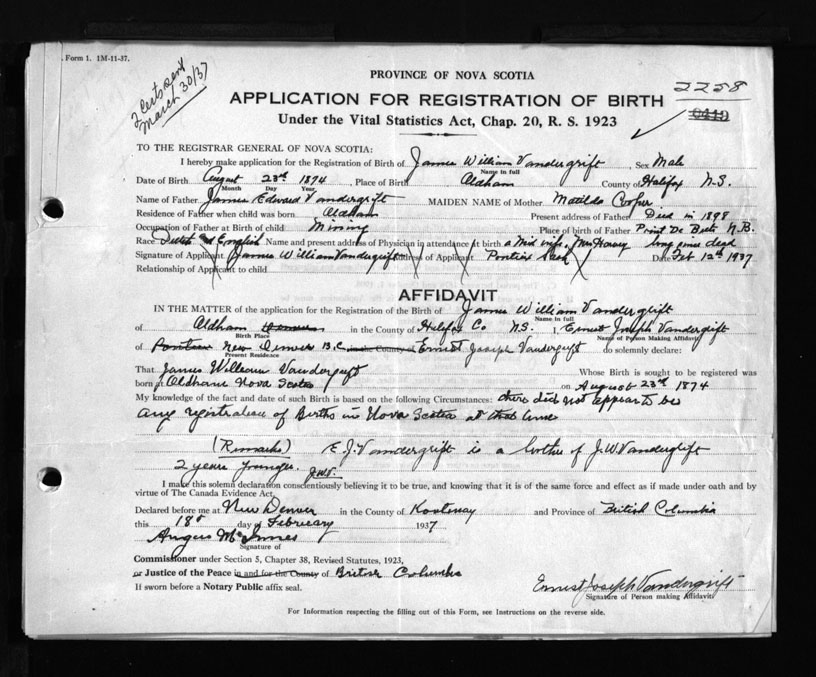 Form 1. 1M-11-37.
2 certs sent
March 30/37
PROVINCE OF NOVA SCOTIA
2258
APPLICATION FOR REGISTRATION OF BIRTH
Under the Vital Statistics Act, Chap. 20, R. S. 1923
TO THE REGISTRAR GENERAL OF NOVA SCOTIA:
I hereby make application for the Registration of Birth of James William Vandergrift Sex Male
Name in full
Date of Birth August 23rd 1874 Place of Birth Oldham County of Halifax N.S.
Month Day Year
Name of Father James Edward Vandergrift MAIDEN NAME of Mother Matilda Cooper
Residence of Father when child was born Oldham Present address of Father Died in 1898
Occupation of Father at Birth of child Mining Place of birth of Father Point De Bute N.B.
Race Dutch & English Name and present address of Physician in attendance at birth a Mid wife, Mrs Horsey long since dead
Signature of Applicant James William Vandergrift Address of Applicant Pontiex Sask Date Feb 12th 1937
Relationship of Applicant to child
AFFIDAVIT
IN THE MATTER of the application for the Registration of the Birth of James William Vandergrift
Name in full
of Oldham in the County of Halifax Co N.S. I, Ernest Joseph Vandergrift
Birth Place Name of Person Making Affidavit
of New Denver B.C. in the County of Ernest Joseph Vandergrift do solemnly declare:
Present Residence
That James William Vandergrift Whose Birth is sought to be registered was
born at Oldham Nova Scotia on August 23rd 1874
My knowledge of the fact and date of such Birth is based on the following Circumstances: there did not appear to be
any registration of Births in Nova Scotia at that time
(Remarks) E. J. Vandergrift is a brother of J. W Vandergrift
2 years younger. J.W.V.
I make this solemn declaration conscientiously believing it to be true, and knowing that it is of the same force and effect as if made under oath and by
virtue of The Canada Evidence Act.
Declared before me at New Denver in the County of Kootenay and Province of British Columbia
this 18th day of February 1937
Angus McInnes
Signature of
Commissioner under Section 5, Chapter 38, Revised Statutes, 1923,
or Justice of the Peace in and for the County of British Columbia
If sworn before a Notary Public affix seal.
Ernest Joseph Vandergrift
Signature of Person making Affidavit
For Information respecting the filling out of this Form, see Instructions on the reverse side.